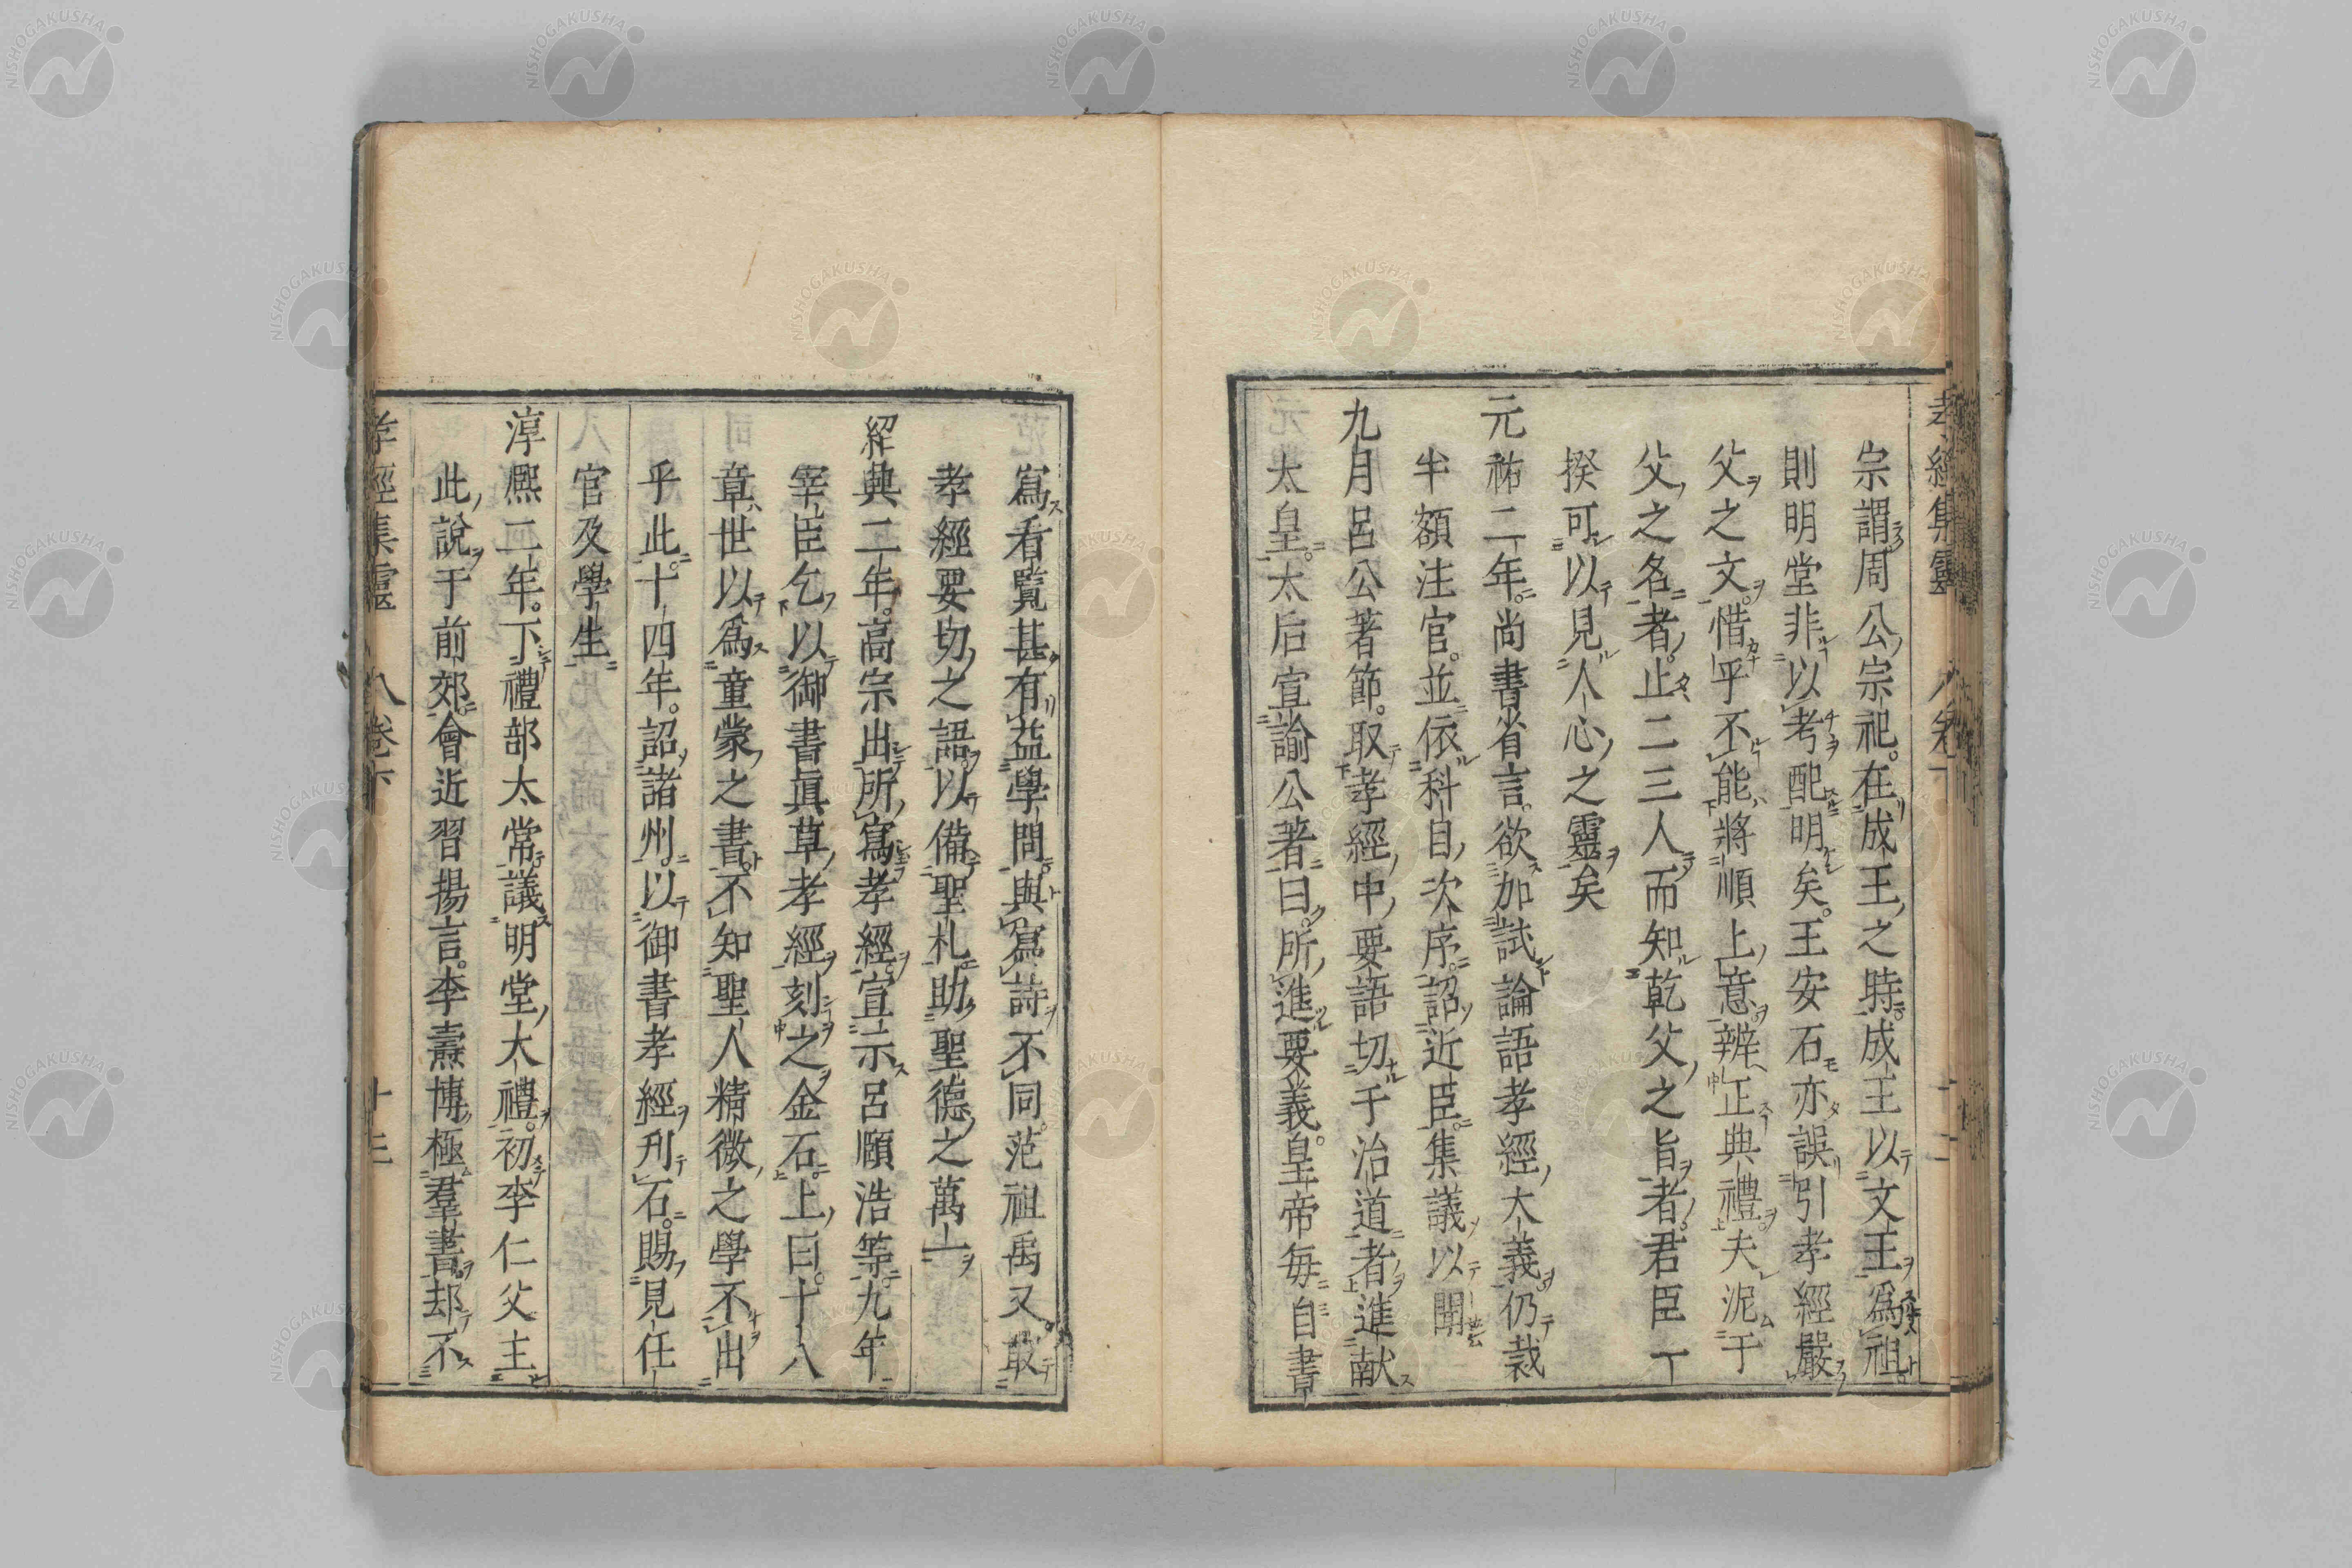 宗謂周公宗祀在成王之時成王以文王爲祖
則明堂非以考配明矣王安石亦誤引孝經嚴
父之文惜乎不能將順上意辨正典禮夫泥于
父之名者止二三人而知乾父之旨者君臣一
揆可以見人心之靈矣
元祐二年尚書省言欲加試論語孝經大義仍裁
半額注官並依科目次序詔近臣集議以聞
九月呂公著節取孝經中要語切于治道者進献
太皇太后宣諭公著曰所進要義皇帝每自書
寫看覽甚有益學問與寫詩不同范祖禹又取
孝經要切之語以備聖札助聖德之萬一
紹興二年高宗出所寫孝經宣示呂頤浩等九年
宰臣乞以御書眞草孝經刻之金石上曰十八
章世以爲童蒙之書不知聖人精微之學不出
乎此十四年詔諸州以御書孝經刋石賜見任
官及學生
淳熙二年下禮部太常議明堂大禮初李仁父主
此說于前郊會近習揚言李燾博極羣書却不
孝經集靈 卷下 十三